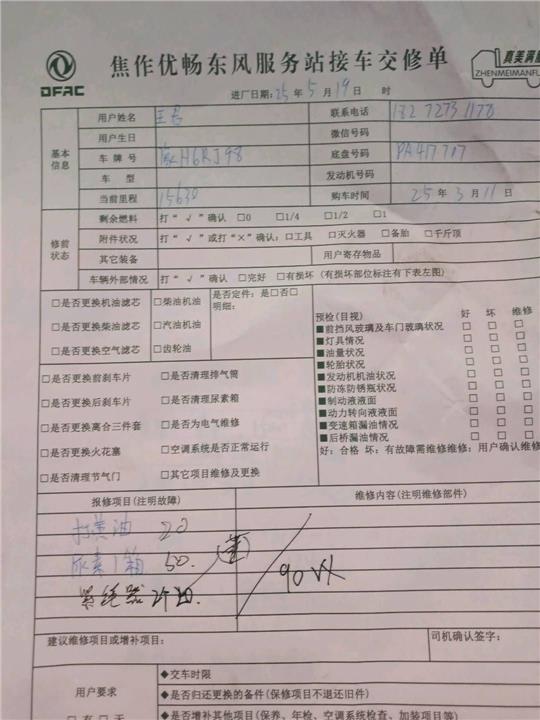 焦作优畅东风服务站接车交修单
DFAC
真美满
ZHENMEIMANFU
进厂日期:25年5月19日 时
基本信息
用户姓名 王
联系电话 182 7273 1178
用户生日
微信号码
车牌号 H6RJ98
底盘号码 PA417707
车型
发动机号码
当前里程 15630
购车时间 25年3月11日
修前状态
剩余燃料 打“√”确认 □0 □1/4 □1/2 □1
附件状况 打“√”或打“×”确认:□工具 □灭火器 □备胎 □千斤顶
其它装备 用户寄存物品
车辆外部情况 打“√”确认 □完好 □有损坏(有损坏部位标注有下表左图)
□是否更换机油滤芯 □柴油机油 是否定件:是□否□
明细:
□是否更换柴油滤芯 □汽油机油
□是否更换空气滤芯 □齿轮油
□是否更换前刹车片 □是否清理排气筒
□是否更换后刹车片 □是否清理尿素箱
□是否更换离合三件套 □是否为电气维修
□是否更换火花塞 □空调系统是否正常运行
□是否清理节气门 □其它项目维修及更换
预检(目视) 好 坏 维修
■前挡风玻璃及车门玻璃状况 □ □ □
■灯具情况 □ □ □
■油量状况 □ □ □
■轮胎状况 □ □ □
■发动机机油状况 □ □ □
■防冻防锈瓶状况 □ □ □
■制动液液面 □ □ □
■动力转向液液面 □ □ □
■变速箱漏油情况 □ □ □
■后桥漏油情况 □ □ □
好:合格 坏:有故障需维修维修:用户确认维修
报修项目(注明故障) 维修内容(注明维修部件)
打黄油 20
尿素1箱 50.
紧绳器 2个 20.
90
建议维修项目或增补项目:
司机确认签字:
用户要求
◆交车时限
◆是否归还更换的备件(保修项目不退还旧件)
◆是否增补其他项目(保养、年检、空调系统检查、加装项目等)
□有□无